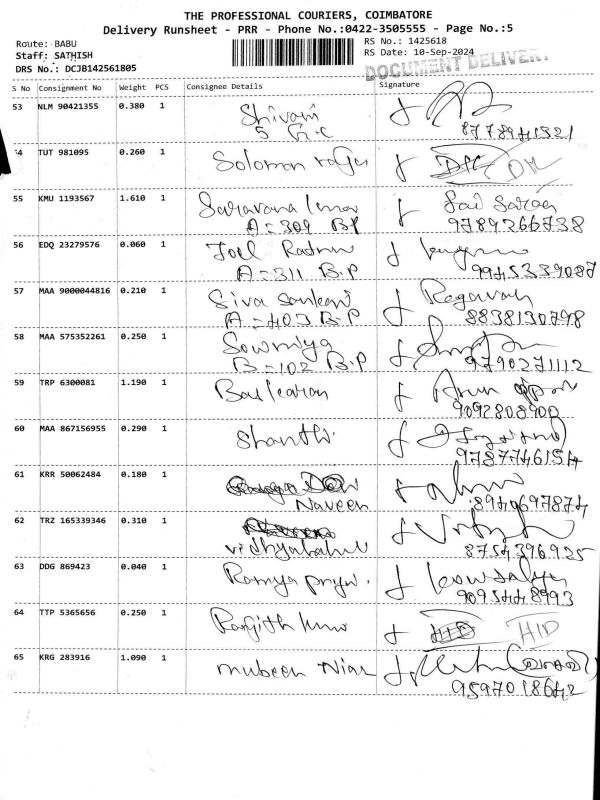 THE PROFESSIONAL COURIERS, COIMBATORE
Delivery Runsheet - PRR - Phone No.:0422-3505555 - Page No.:5
Route: BABU
Staff: SATHISH
DRS No.: DCJB142561805
RS No.: 1425618
RS Date: 10-Sep-2024
DOCUMENT DELIVERY
S No Consignment No Weight PCS Consignee Details Signature
53 NLM 90421355 0.380 1 Shivani
5 G.C 8778941321
54 TUT 981095 0.260 1 Solomon
55 KMU 1193567 1.610 1 Saravana Sai Saran
A=309 B.P 9789266738
56 EDQ 23279576 0.060 1 Joel
A=311 B.P 9945339087
57 MAA 9000044816 0.210 1 Siva
A=403 B.P 8838130798
58 MAA 575352261 0.250 1 Sowmiya
B=102 B.P 9790271112
59 TRP 6300081 1.190 1 Baskaran Arun
9092808900
60 MAA 867156955 0.290 1 Shanthi
9787746154
61 KRR 50062484 0.180 1
Naveen 8940697874
62 TRZ 165339346 0.310 1
8754396925
63 DDG 869423 0.040 1 Ramya priya. Kowsalya
9095448993
64 TTP 5365656 0.250 1 Ranjith HID
65 KRG 283916 1.090 1 mubeen Nias
9597018642